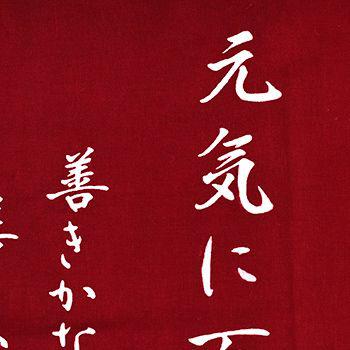 元気に
善きかな